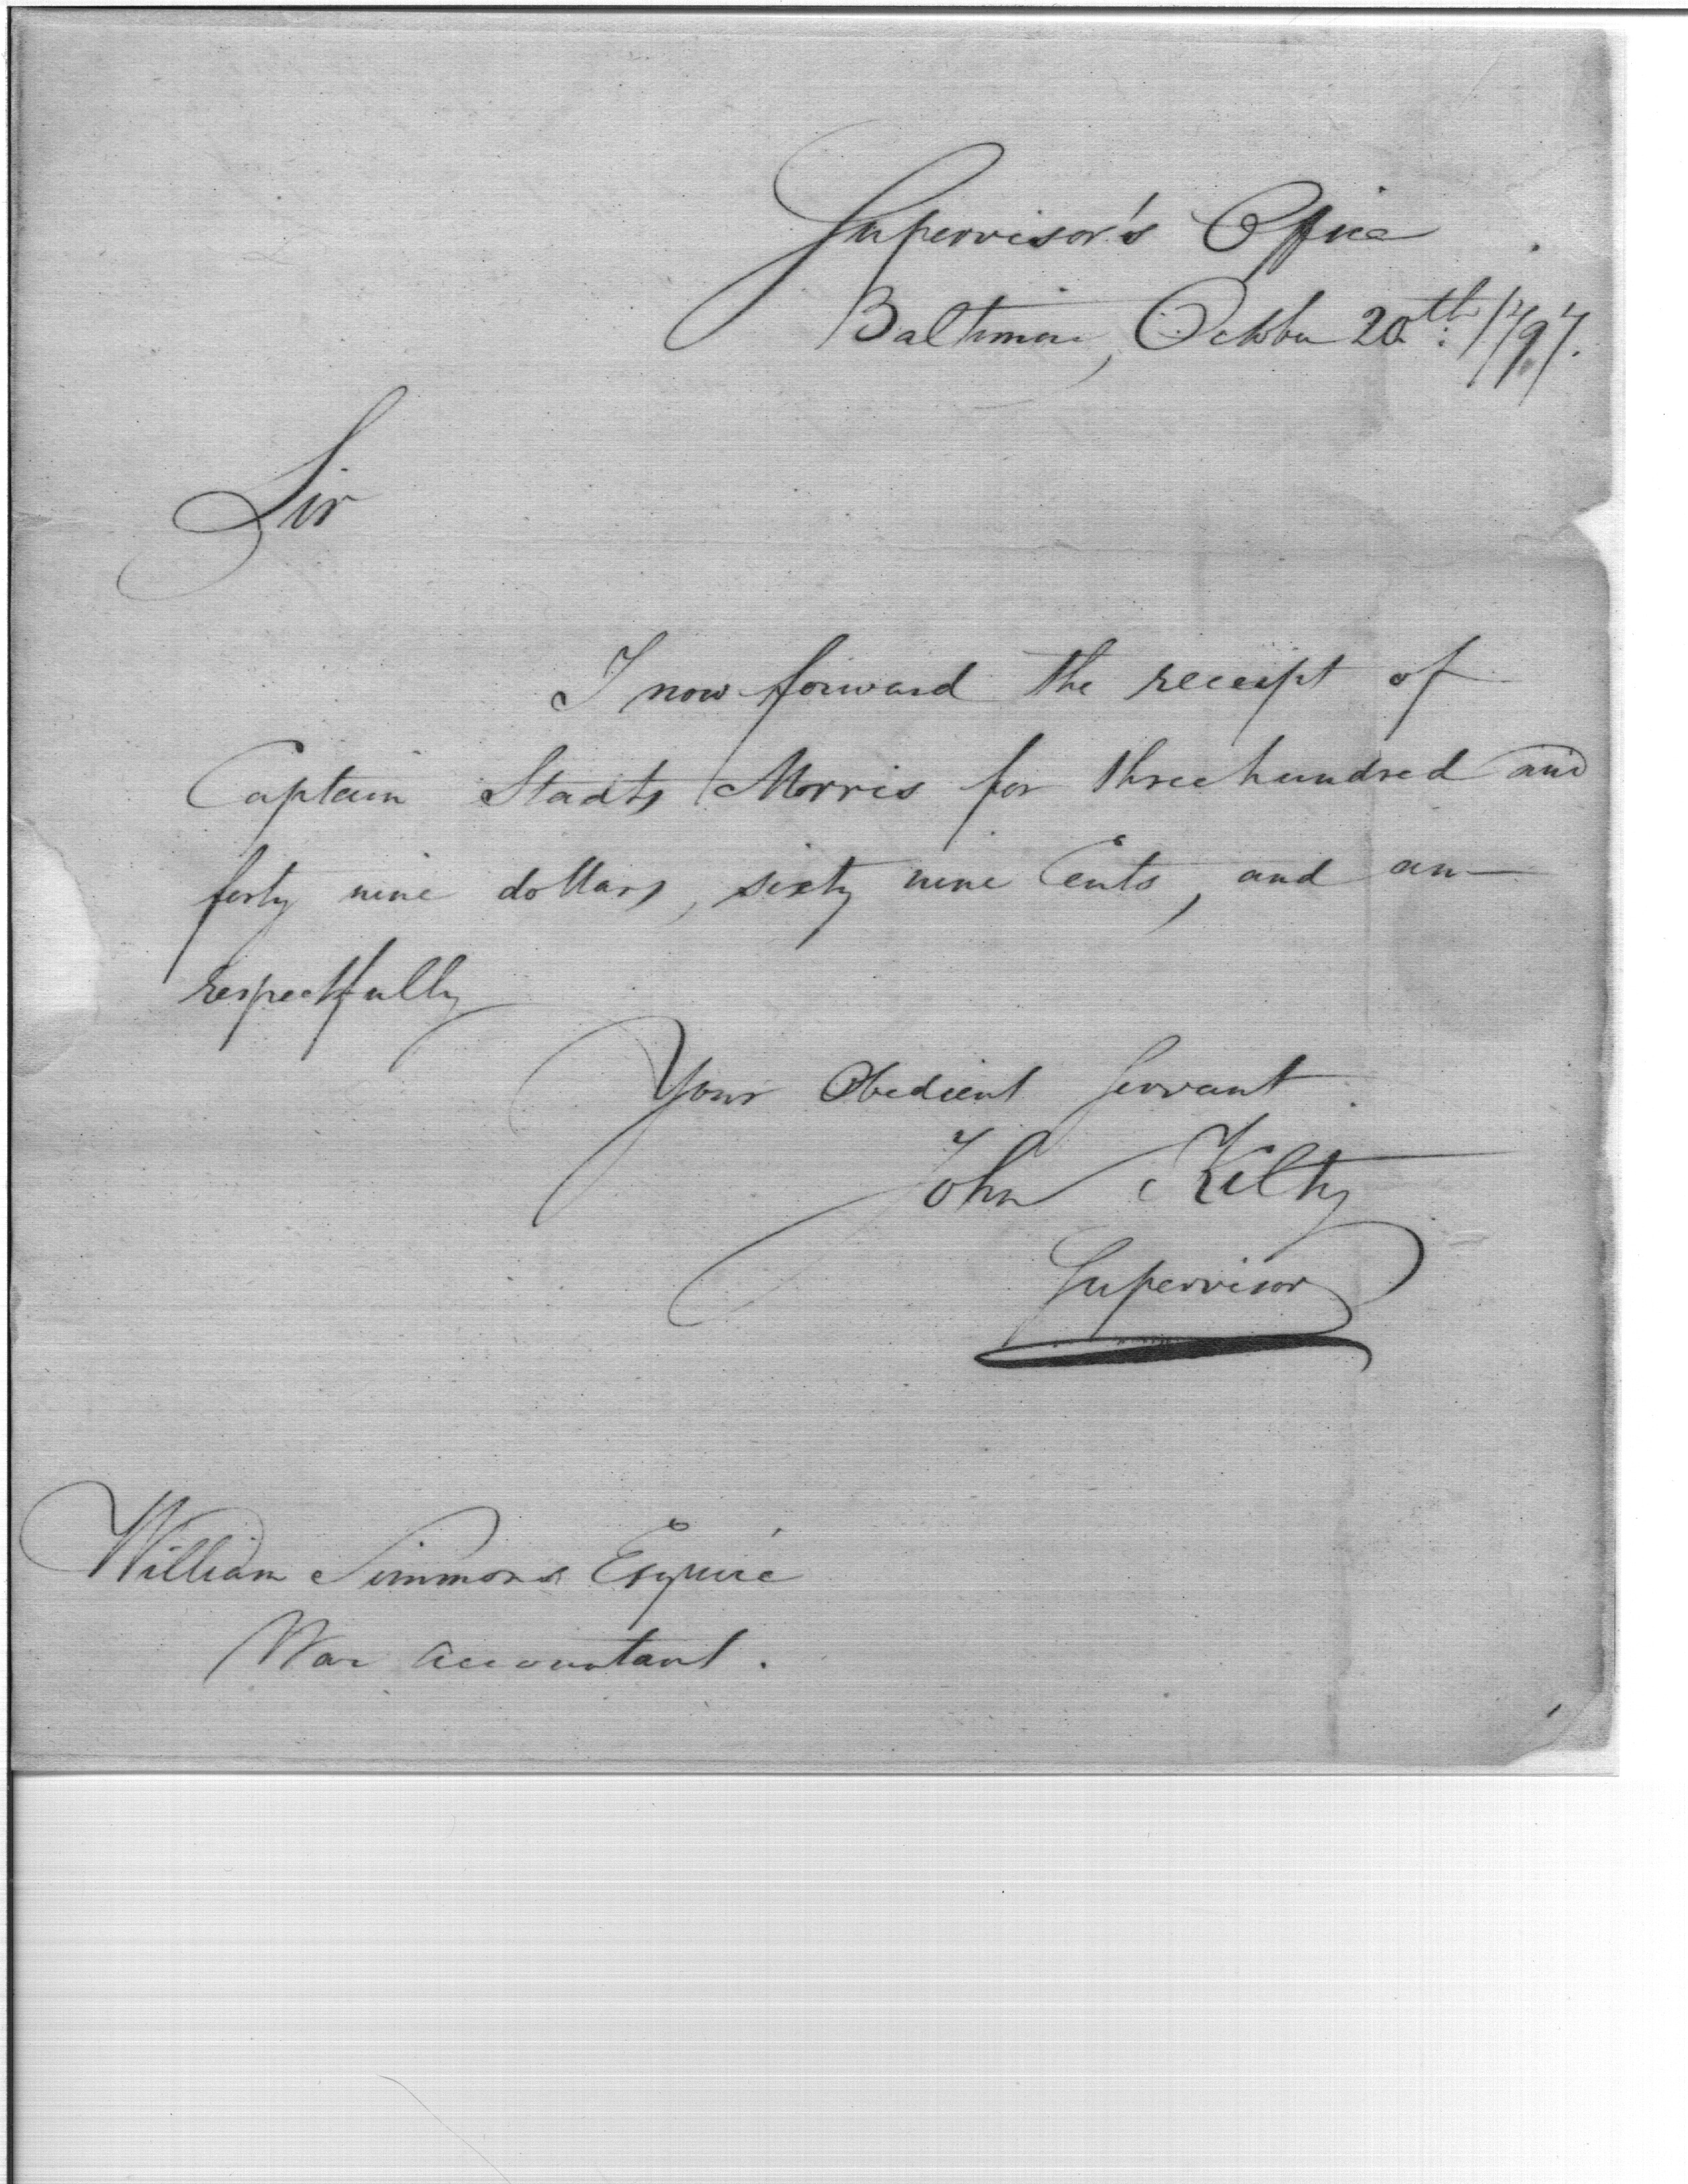 Supervisor's Office
Baltimore, October 20th: 1797.
Sir
I now forward the receipt of
Captain Stadts Morris for three hundred and
forty nine dollars, sixty nine Cents, and am
respectfully
Your Obedient Servant
John Kilty
Supervisor
William Simmons Esquire
War Accountant.